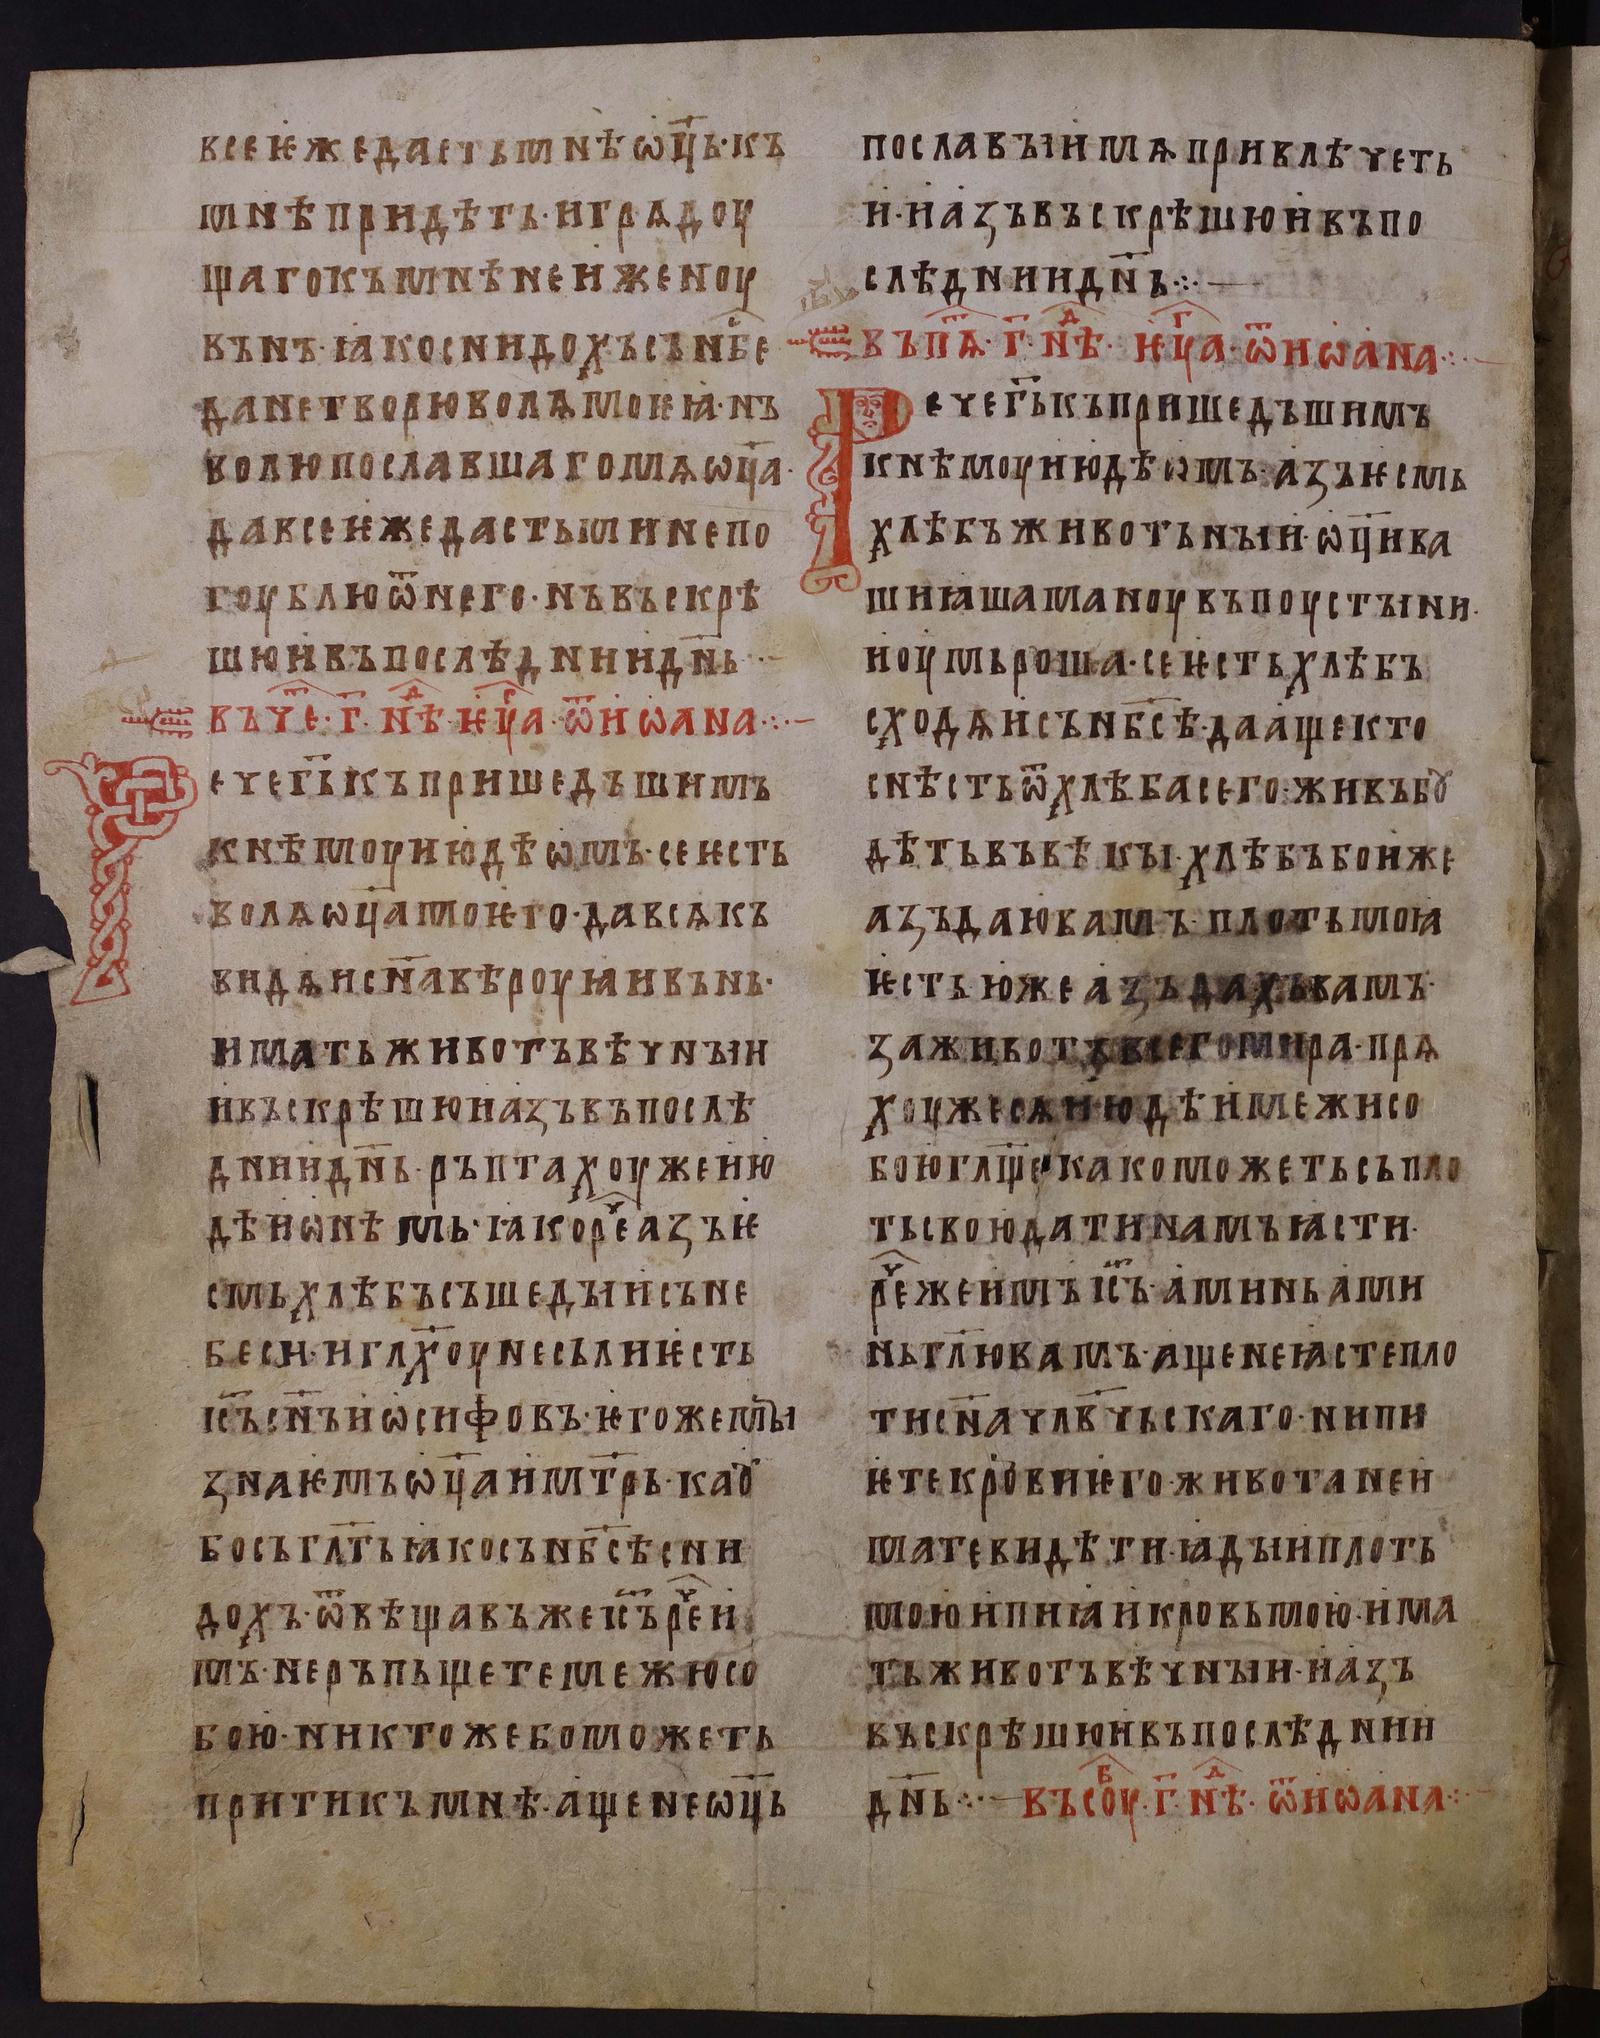 всеѥжедастьмнѣѡц҃ь·къ
мнѣпридѣть·иградоу
щагокъмнѣнеиженоу
вънъ·ꙗкоснидохъсън҃бе
данетворюволѧмоѥꙗ·нъ
волюпославшагомѧѡц҃а·
давсеѥжедастьминепо
гоублюѿнего·нъвъскрѣ
шюивъпослѣднииднь҃·
въче·г҃·н҃ѣ·ѥѵ҃а·ѿиѡана·:·
Речег҃ькъпришедъшимъ
кнѣмоуиюдѣѡмъ·сеѥсть
волѧѡц҃амоѥго·давсѧкъ
видѧисн҃авѣроуꙗивънь·
иматьживотъвѣчныи
ивъскрѣшюиазъвъпослѣ
днииднь҃·ръптахоужеию
дѣиѡнѣмь·ꙗкоре҃азъѥ
смьхлѣбъсъшедыисъне
беси·иглх҃оунесьлиѥсть
іс҃ъсн҃ъиѡсифовъ·ѥгожемы
знаѥмъѡц҃аимт҃рь·како
босъглт҃ьꙗкосънб҃сѣсни
дохъ·ѿвѣщавъжеіс҃ъре҃и
мъ·неръпьщетемежюсо
бою·никтожебоможеть
притикъмнѣ·ащенеѡц҃ь
пославыимѧпривлѣчеть
и·иазъвъскрѣшюивъпо
слѣднииднь҃·:·
въпѧ·г҃·н҃ѣ·ѥѵ҃а·ѿиѡана·:·
Речег҃ькъпришедъшимъ
кнѣмоуиюдѣѡмъ·азъѥсмь
хлѣбъживотьныи·ѡц҃ива
шиꙗшаманоувъпоустыни·
иоумьроша·сеѥстьхлѣбъ
сходѧисънб҃сѣ·даащекто
снѣстьѿхлѣбасего·живъбꙋ
дѣтьвъвѣкы·хлѣбъбоиже
азъдаювамъ·плотьмоꙗ
ѥстьюжеазъдахъвамъ·
заживотъвсегомира·прѧ
хоужесѧиюдѣимежисо
боюглщ҃екакоможетьсъпло
тьсвоюдатинамъꙗсти·
ре҃жеимъіс҃ъ·аминьами
ньгл҃ювамъ·ащенеꙗстепло
тисн҃ачлв҃чьскаго·нипи
ѥтекровиѥго·животанеи
матевидѣти·ꙗдыиплоть
моюипиꙗикровьмою·има
тьживотъвѣчныи·иазъ
въскрѣшюивъпослѣднии
днь҃·:·въсоу·г҃·н҃ѣ·ѿиѡана·:·